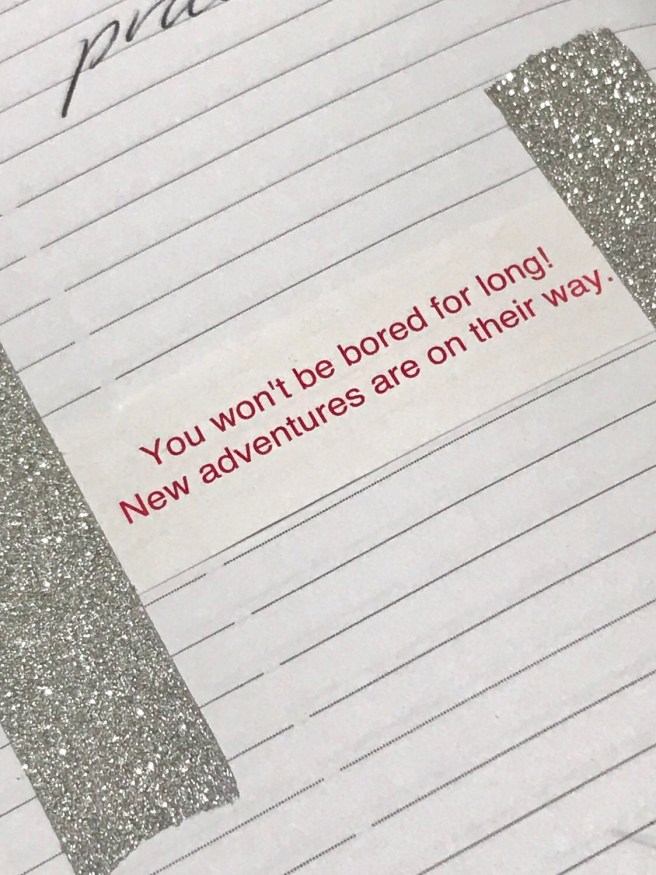 You won't be bored for long!
New adventures are on their way.